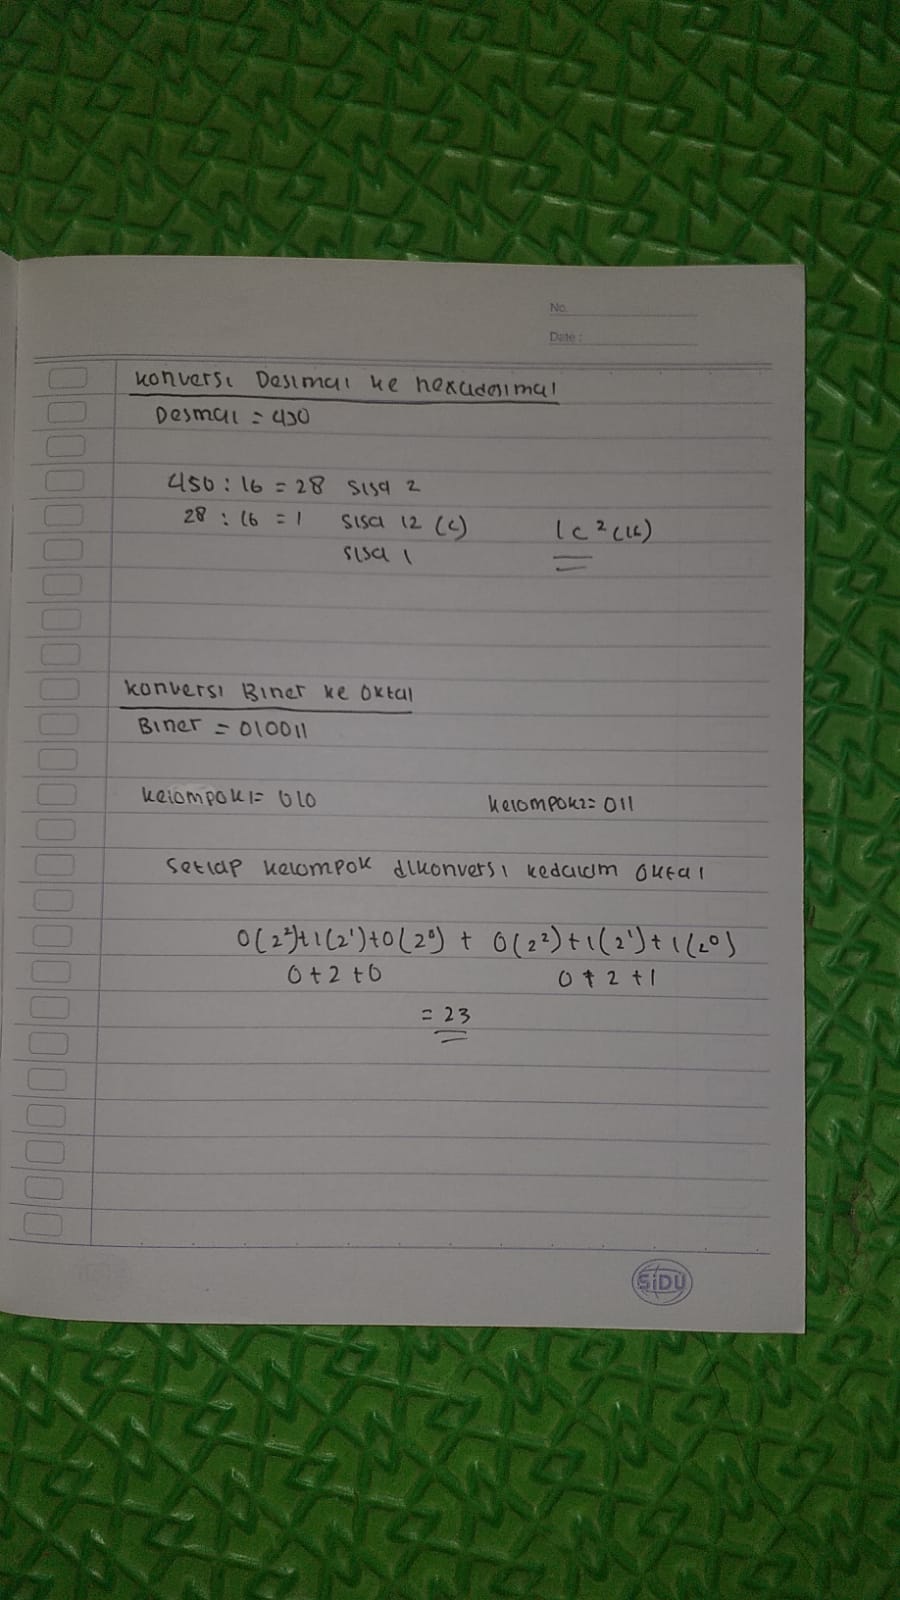 No.
Date :
Konversi Desimal ke hexadesimal
Desmal = 450
450 : 16 = 28 sisa 2
28 : 16 = 1 sisa 12 (c)
sisa 1
1c2(16)
Konversi Biner ke Oktal
Biner = 010011
Kelompok1= 010 Kelompok2= 011
Setiap kelompok dikonversi kedalam Oktal
0(2²)+1(2¹)+0(2⁰) + 0(2²)+1(2¹)+1(2⁰)
0+2+0 0+2+1
= 23
SiDU